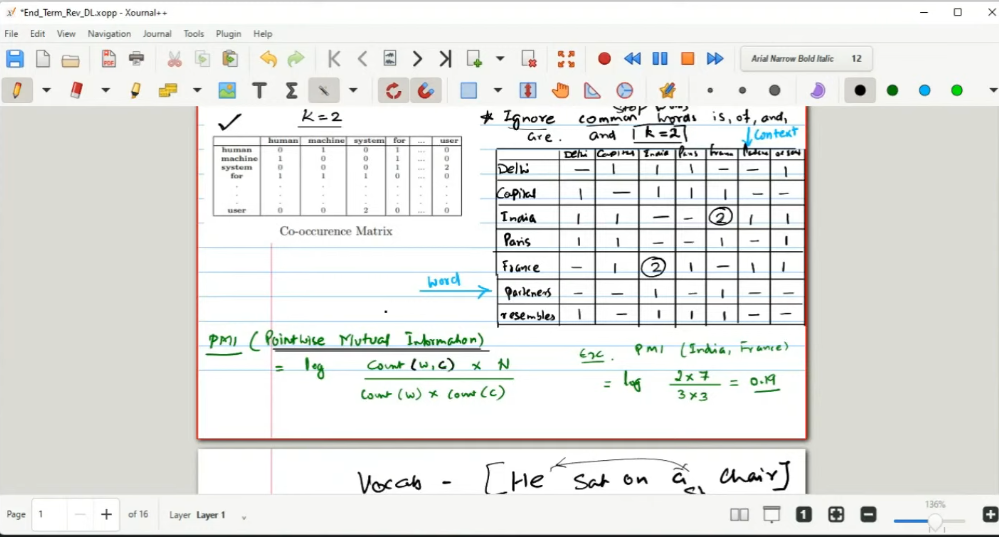 *End_Term_Rev_DL.xopp - Xournal++
File Edit View Navigation Journal Tools Plugin Help
Arial Narrow Bold Italic 12
k=2
human machine system for ... user
human 0 1 0 1 ... 0
machine 1 0 0 1 ... 0
system 0 0 0 1 ... 2
for 1 1 1 0 ... 0
. . . . . .
. . . . . .
. . . . . .
user 0 0 2 0 ... 0
Co-occurence Matrix
* Ignore common words is, of, and,
are. and k=2
Context
Delhi Capital India Paris
Delhi — 1 1 1 — — 1
Capital 1 — 1 1 1 — —
India 1 1 — — 2 1 1
Paris 1 1 — — 1 — 1
France — 1 2 1 — 1 1
Parteners — — 1 — 1 — —
resembles 1 — 1 1 1 — —
word
PMI (Pointwise Mutual Information)
= log Count (w,c) x N
Count (w) x Count (c)
Exc. PMI (India, France)
= log 2x7 = 0.19
3x3
Vocab - [He sat on a chair]
Page 1 of 16 Layer Layer 1
136%